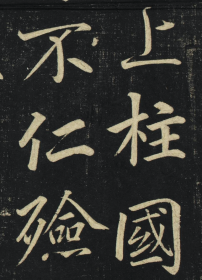 上柱國
不仁殮